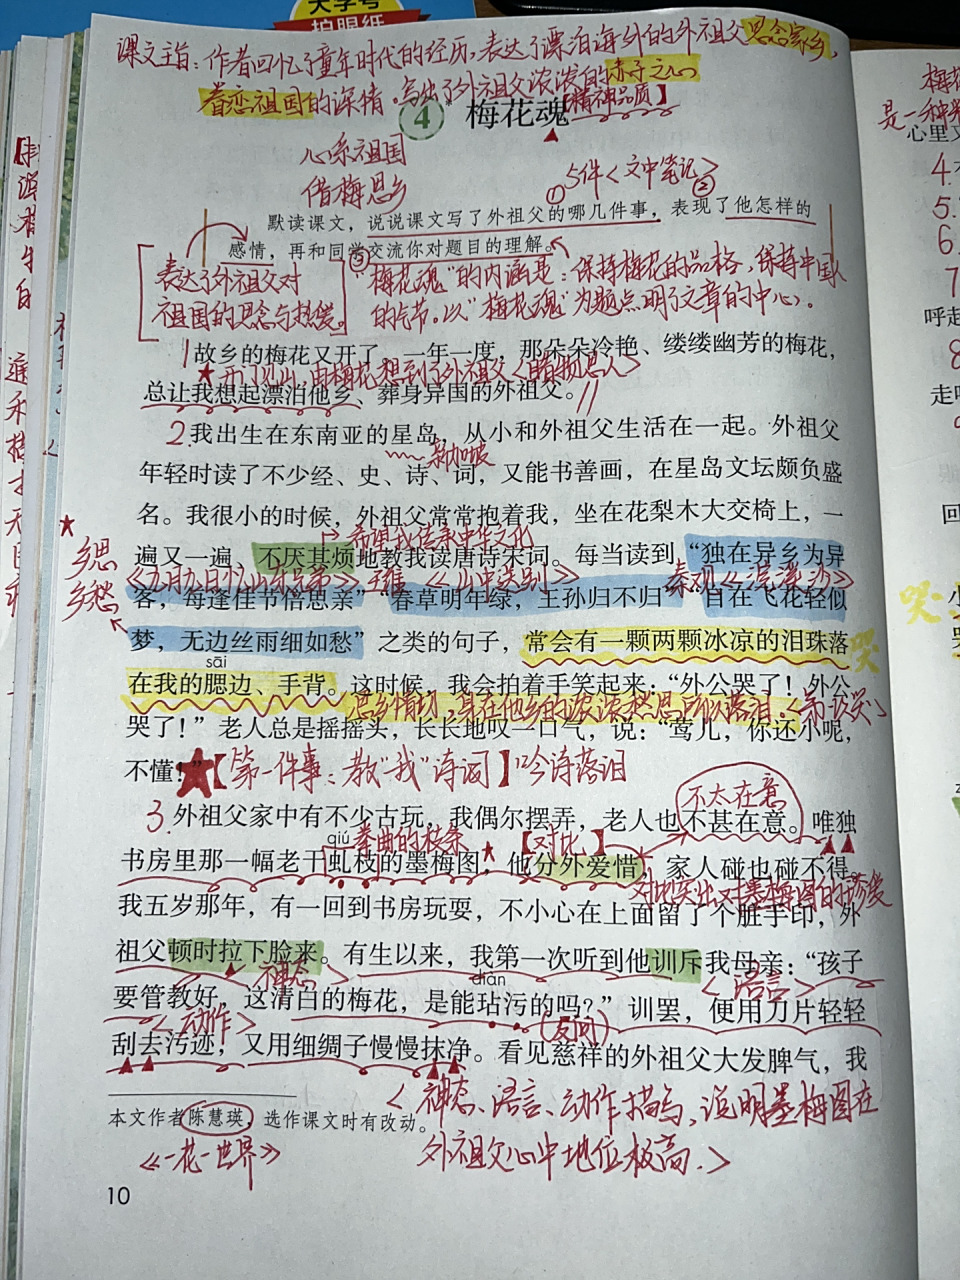 大字号
护眼纸
课文主旨：作者回忆了童年时代的经历，表达了漂泊海外的外祖父思念家乡，
眷恋祖国的深情。写出了外祖父浓浓的赤子之心
【精神品质】
4* 梅花魂
心系祖国
借梅思乡
①5件<文中笔记>
②
默读课文，说说课文写了外祖父的哪几件事，表现了他怎样的
感情，再和同学交流你对题目的理解。
表达了外祖父对
祖国的思念与热爱。
③"梅花魂"的内涵是：保持梅花的品格，保持中国人
的气节。以"梅花魂"为题点明了文章的中心。
1故乡的梅花又开了。一年一度，那朵朵冷艳、缕缕幽芳的梅花，
★开门见山，由梅花想到了外祖父<睹物思人>
总让我想起漂泊他乡、葬身异国的外祖父。
2我出生在东南亚的星岛，从小和外祖父生活在一起。外祖父
新加坡
年轻时读了不少经、史、诗、词，又能书善画，在星岛文坛颇负盛
名。我很小的时候，外祖父常常抱着我，坐在花梨木大交椅上，一
希望我传承中华文化
遍又一遍、不厌其烦地教我读唐诗宋词。每当读到“独在异乡为异
乡思
乡愁
《九月九日忆山东兄弟》王维 《山中送别》 秦观《浣溪沙》
客，每逢佳节倍思亲”“春草明年绿，王孙归不归”“自在飞花轻似
梦，无边丝雨细如愁”之类的句子，常会有一颗两颗冰凉的泪珠落
哭
sāi
在我的腮边、手背。这时候，我会拍着手笑起来：“外公哭了！外公
思乡情切，身在他乡的浓浓愁思，所以落泪。
哭了！”老人总是摇摇头，长长地叹一口气，说：“莺儿，你还小呢，
不懂！”
【第一件事：教"我"诗词】吟诗落泪
不太在意
3.外祖父家中有不少古玩，我偶尔摆弄，老人也不甚在意。唯独
qiú 卷曲的枝条 【对比】
书房里那一幅老干虬枝的墨梅图，他分外爱惜，家人碰也碰不得。
对比突出对墨梅图的珍爱
我五岁那年，有一回到书房玩耍，不小心在上面留了个脏手印，外
祖父顿时拉下脸来。有生以来，我第一次听到他训斥我母亲：“孩子
<神态> diàn <语言>
要管教好，这清白的梅花，是能玷污的吗？”训罢，便用刀片轻轻
<动作> (反问)
刮去污迹，又用细绸子慢慢抹净。看见慈祥的外祖父大发脾气，我
<神态、语言、动作描写，说明墨梅图在
外祖父心中地位极高。>
本文作者陈慧瑛，选作课文时有改动。
《一花一世界》
10
梅花
是一种
心里又
4.
5.
6.
7
呼起
8
走
回
哭